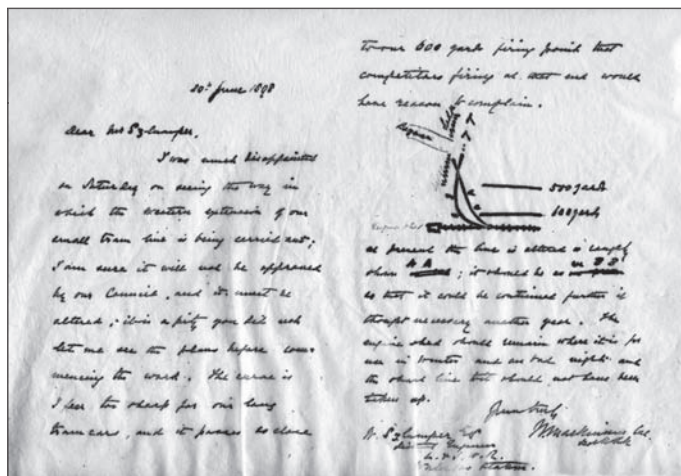 20th June 1898
Dear Mr Szlumper,
I was much disappointed
on Saturday on seeing the way in
which the western extension of our
small tram line is being carried out;
I am sure it will not be approved
by our Council, and it must be
altered; it is a pity you did not
let me see the plans before com-
mencing the work. The curve is
I fear too sharp for our long
tramcars, and it passes so close
to our 600 yards firing point that
competitors firing at that end would
have reason to complain.
500 yards
600 yards
Engine shed
at present the line is altered is
AA; it should be as BB
so that it could be continued further if
thought necessary another year. The
engine shed should remain where it is for
use in Winter and on bad nights and
the short line that should not have been
taken up.
Yours truly
W. Szlumper Esq
District Engineer
L. & S. W. R.
Station.